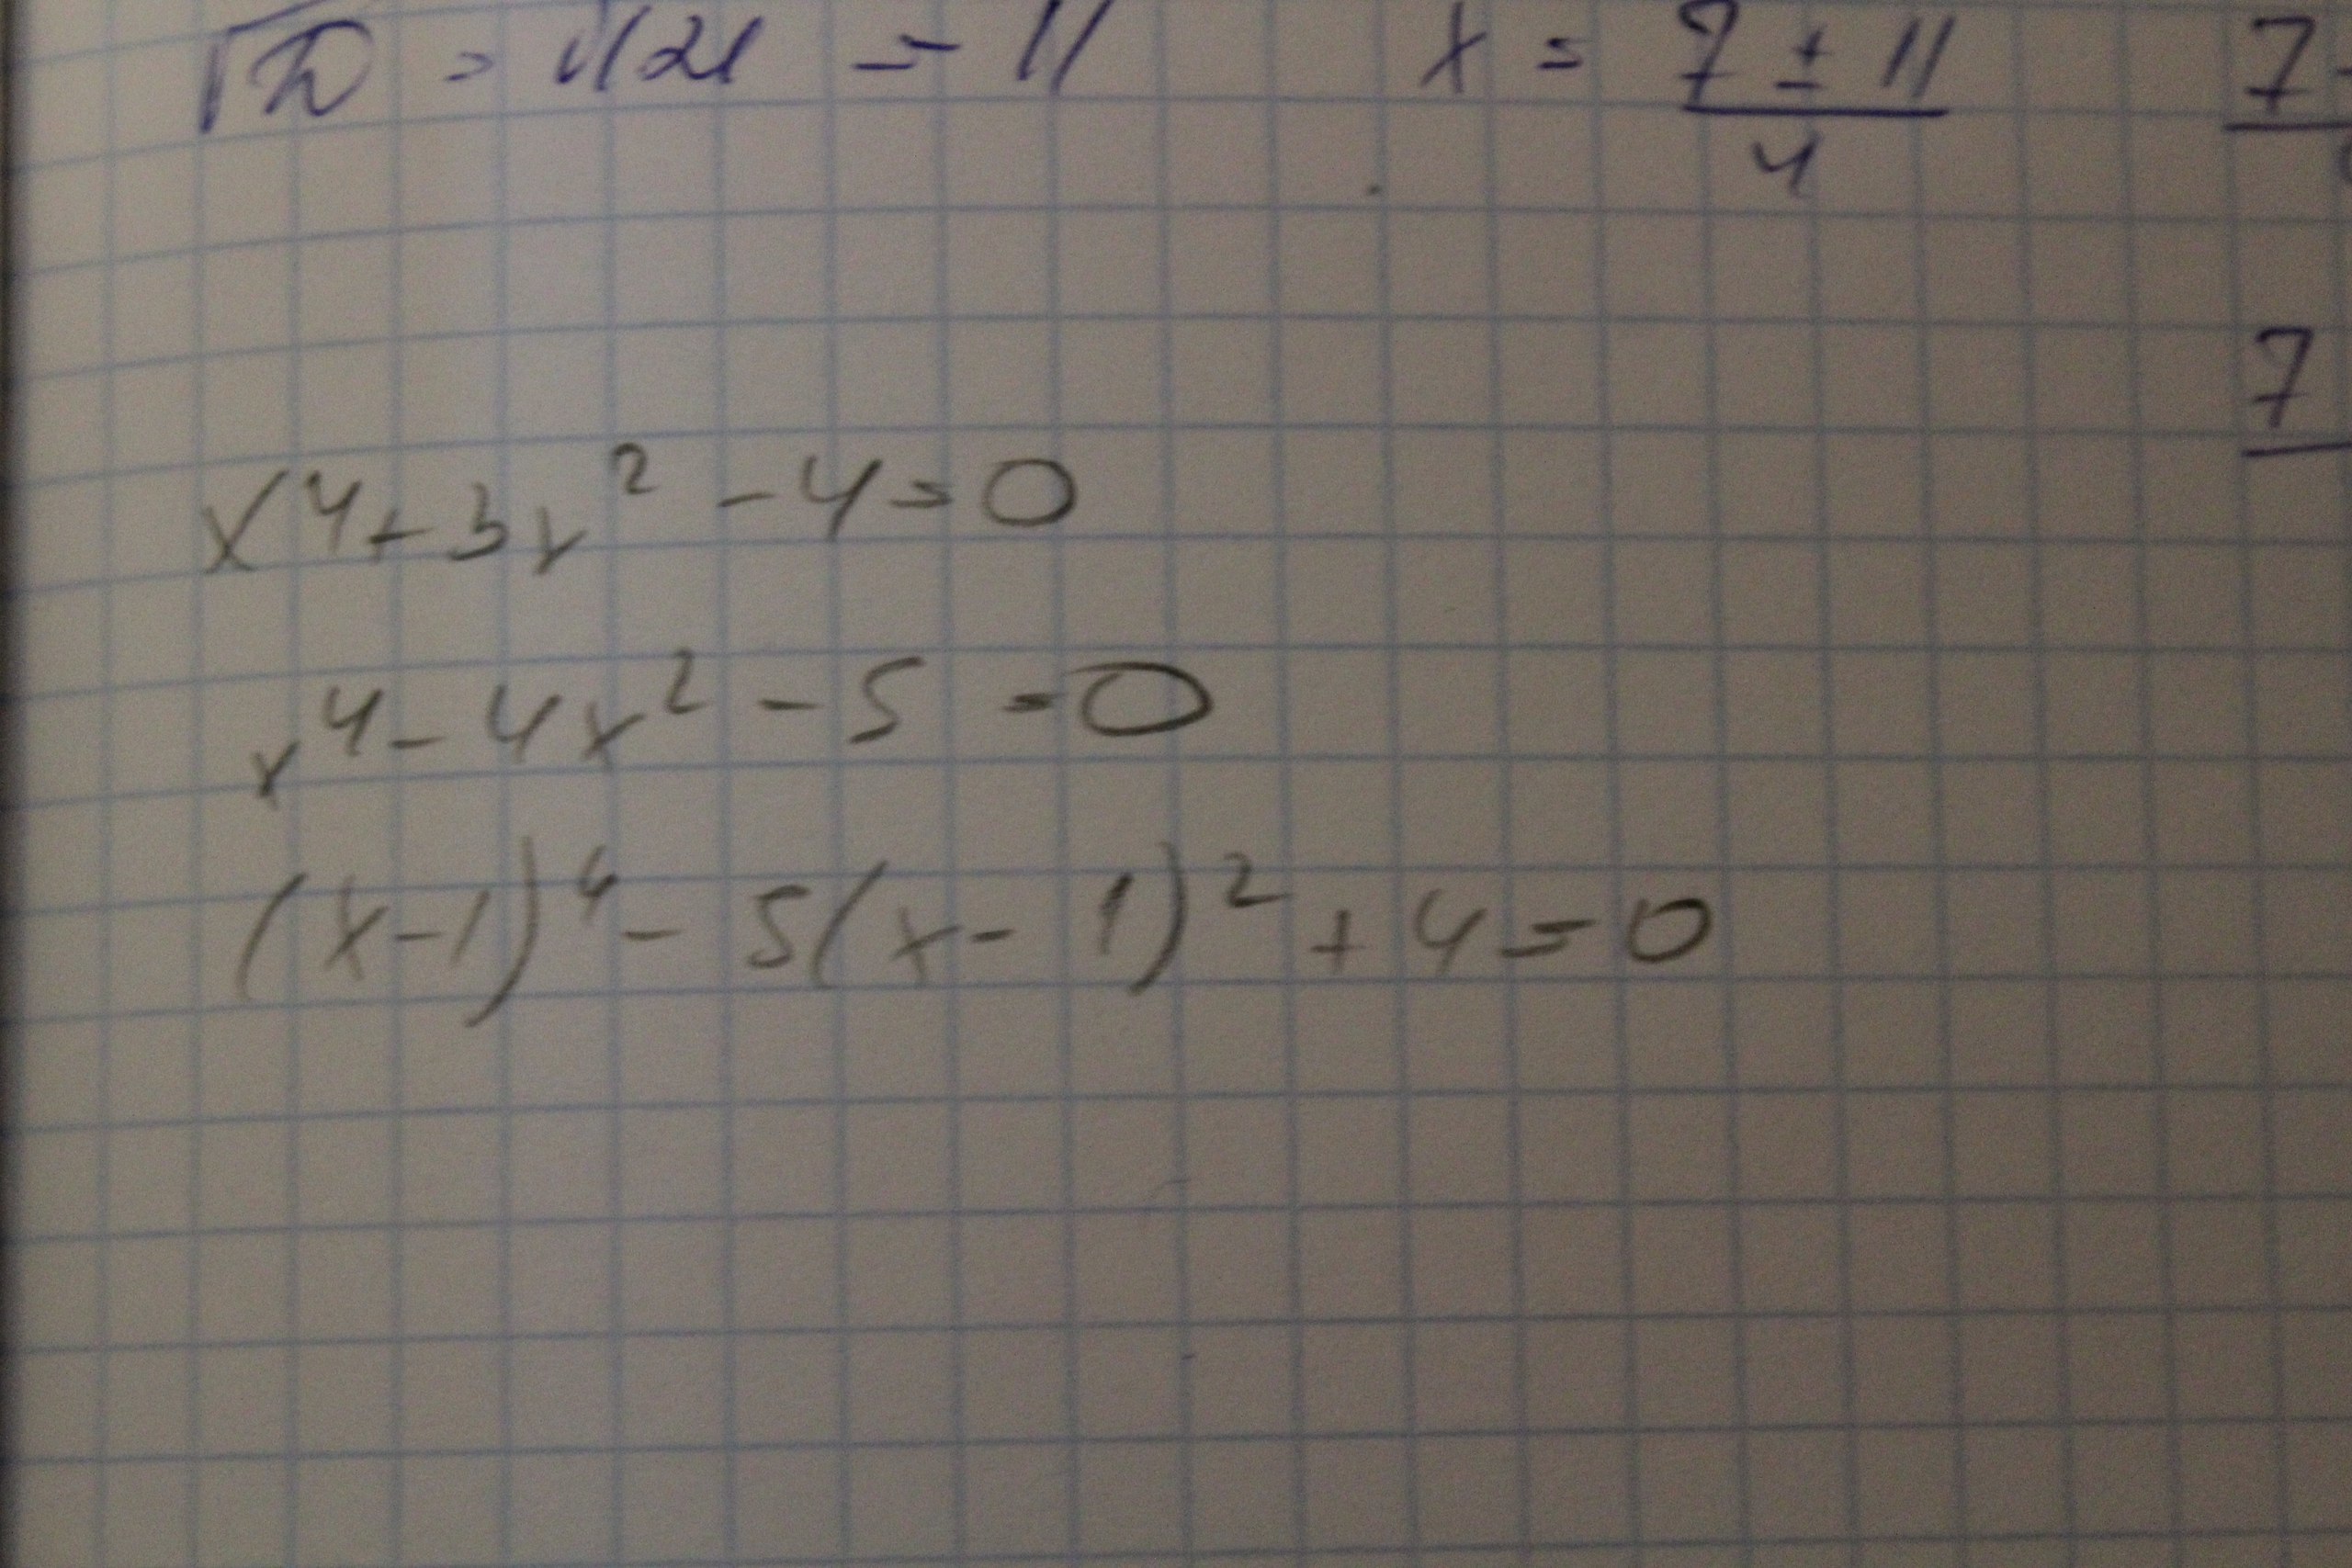 √D = √121 = 11 x = (7 ± 11)/4 7
7
x⁴ + 3x² - 4 = 0
x⁴ - 4x² - 5 = 0
(x-1)⁴ - 5(x-1)² + 4 = 0